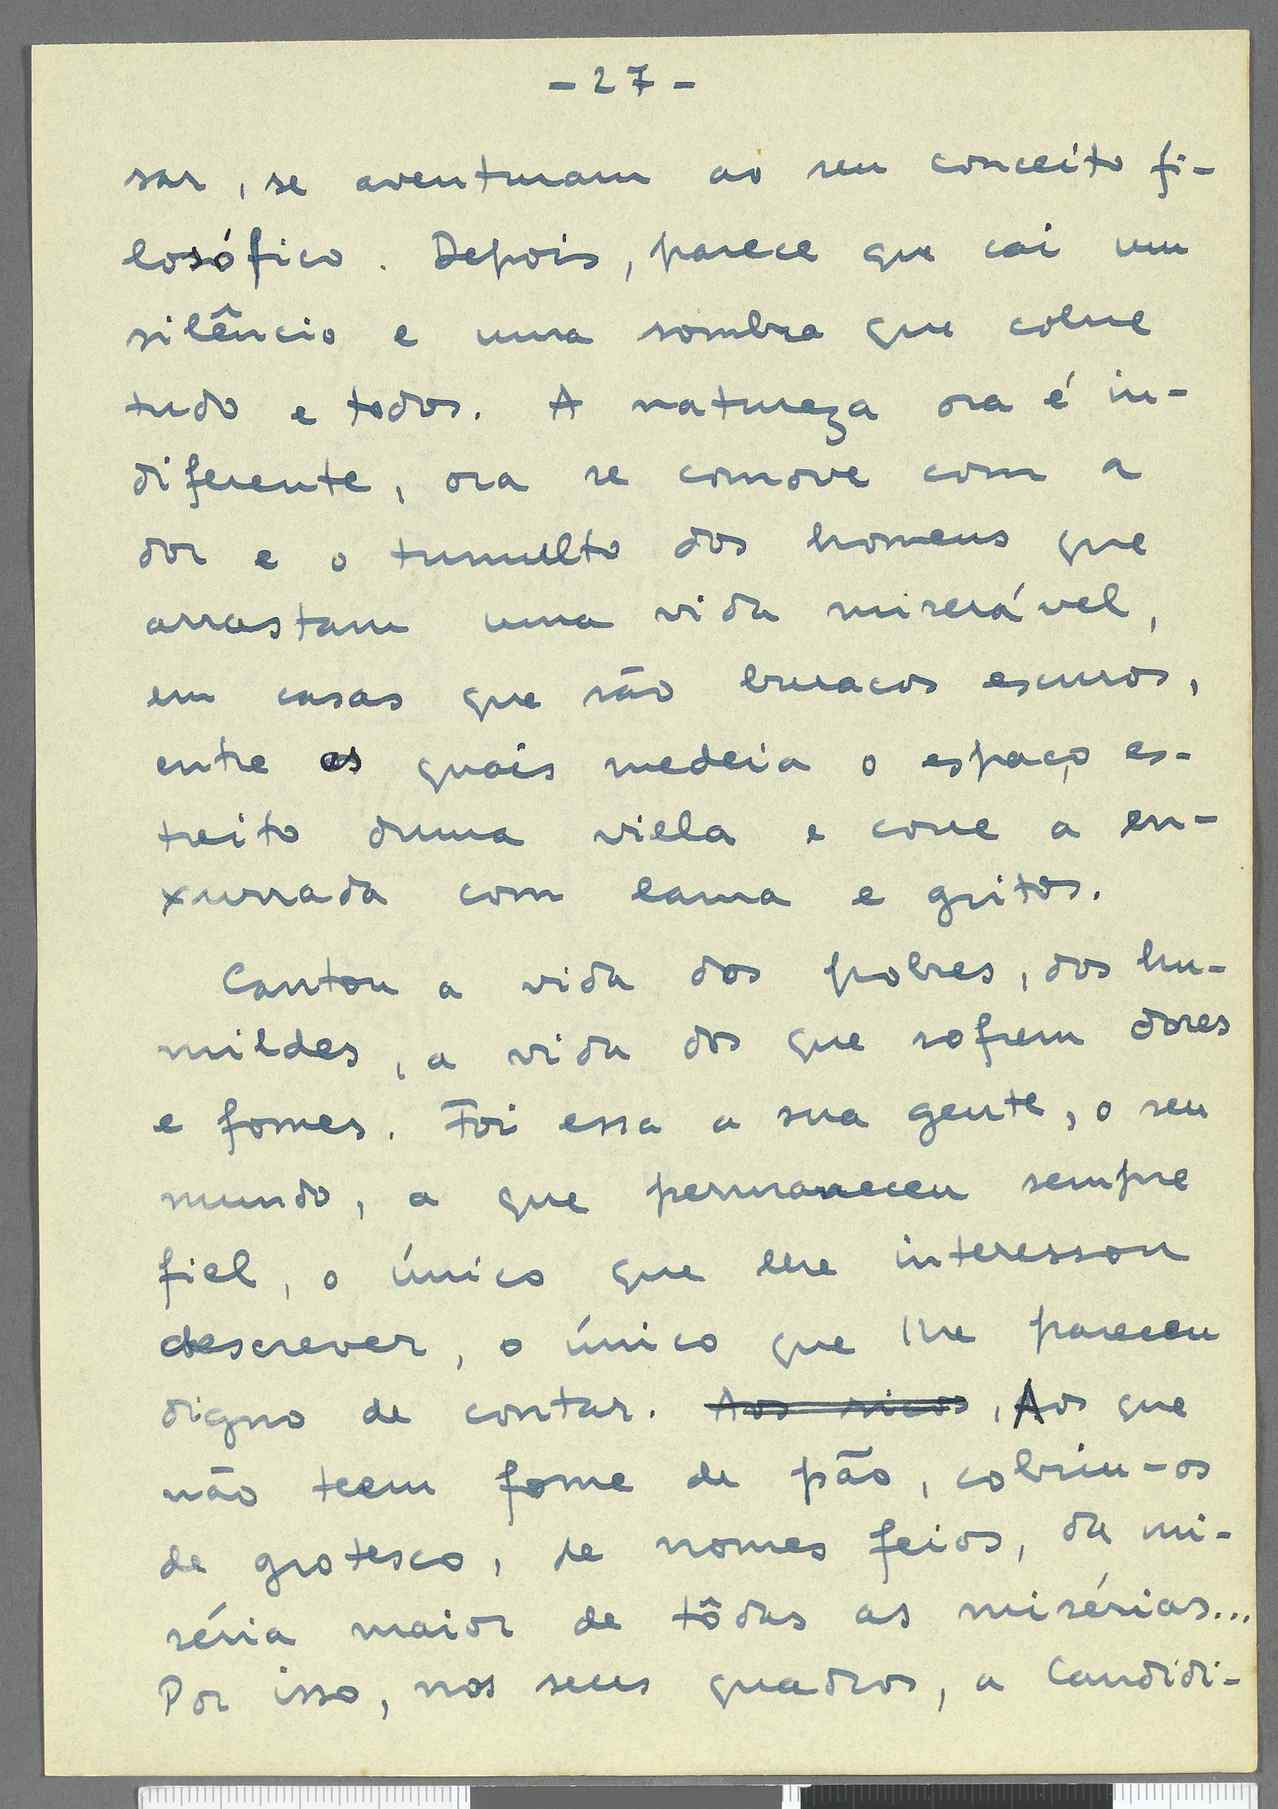 - 27 -
sar, se aventuram ao seu conceito fi-
losófico. Depois, parece que cai um
silêncio e uma sombra que cobre
tudo e todos. A natureza ora é in-
diferente, ora se comove com a
dor e o tumulto dos homens que
arrastam uma vida miserável,
em casas que são buracos escuros,
entre as quais medeia o espaço es-
treito duma viela e corre a en-
xurrada com lama e gritos.
Cantou a vida dos pobres, dos hu-
mildes, a vida dos que sofrem dores
e fomes. Foi essa a sua gente, o seu
mundo, a que permaneceu sempre
fiel, o único que lhe interessou
descrever, o único que lhe pareceu
digno de contar. Aos ricos, Aos que
não teem fome de pão, cobriu-os
de grotesco, de nomes feios, da mi-
séria maior de tôdas as misérias...
Por isso, nos seus quadros, a Candidi-